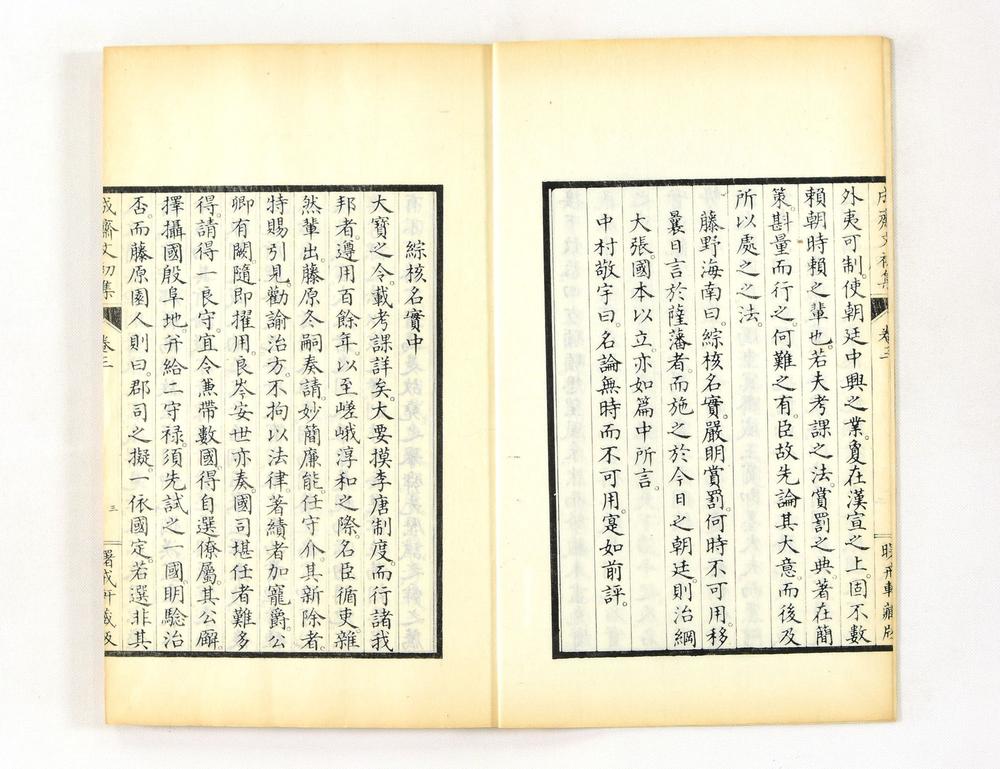 成齋文初集 卷三 曙戒軒藏版
外夷可制。使朝廷中興之業。敻在漢宣之上。固不數
賴朝時賴之輩也。若夫考課之法。賞罰之典。著在簡
策。斟量而行之。何難之有。臣故先論其大意。而後及
所以處之之法。
藤野海南曰。綜核名實。嚴明賞罰。何時不可用。移
曩日言於薩藩者。而施之於今日之朝廷。則治綱
大張。國本以立。亦如篇中所言。
中村敬宇曰。名論無時而不可用。寔如前評。
綜核名實中
大寶之令。載考課詳矣。大要摸李唐制度。而行諸我
邦者。遵用百餘年。以至嵯峨淳和之際。名臣循吏。雜
然輩出。藤原冬嗣奏請。妙簡廉能。任守介。其新除者。
特賜引見。勸諭治方。不拘以法律。著績者加寵爵。公
卿有闕。隨即擢用。良岑安世亦奏。國司堪任者難多
得。請得一良守。宜令兼帶數國。得自選僚屬。其公廨。
擇攝國殷阜地。并給二守祿。須先試之一國。明驗治
否。而藤原園人則曰。郡司之擬。一依國定。若選非其
成齋文初集 卷三 三 曙戒軒藏版